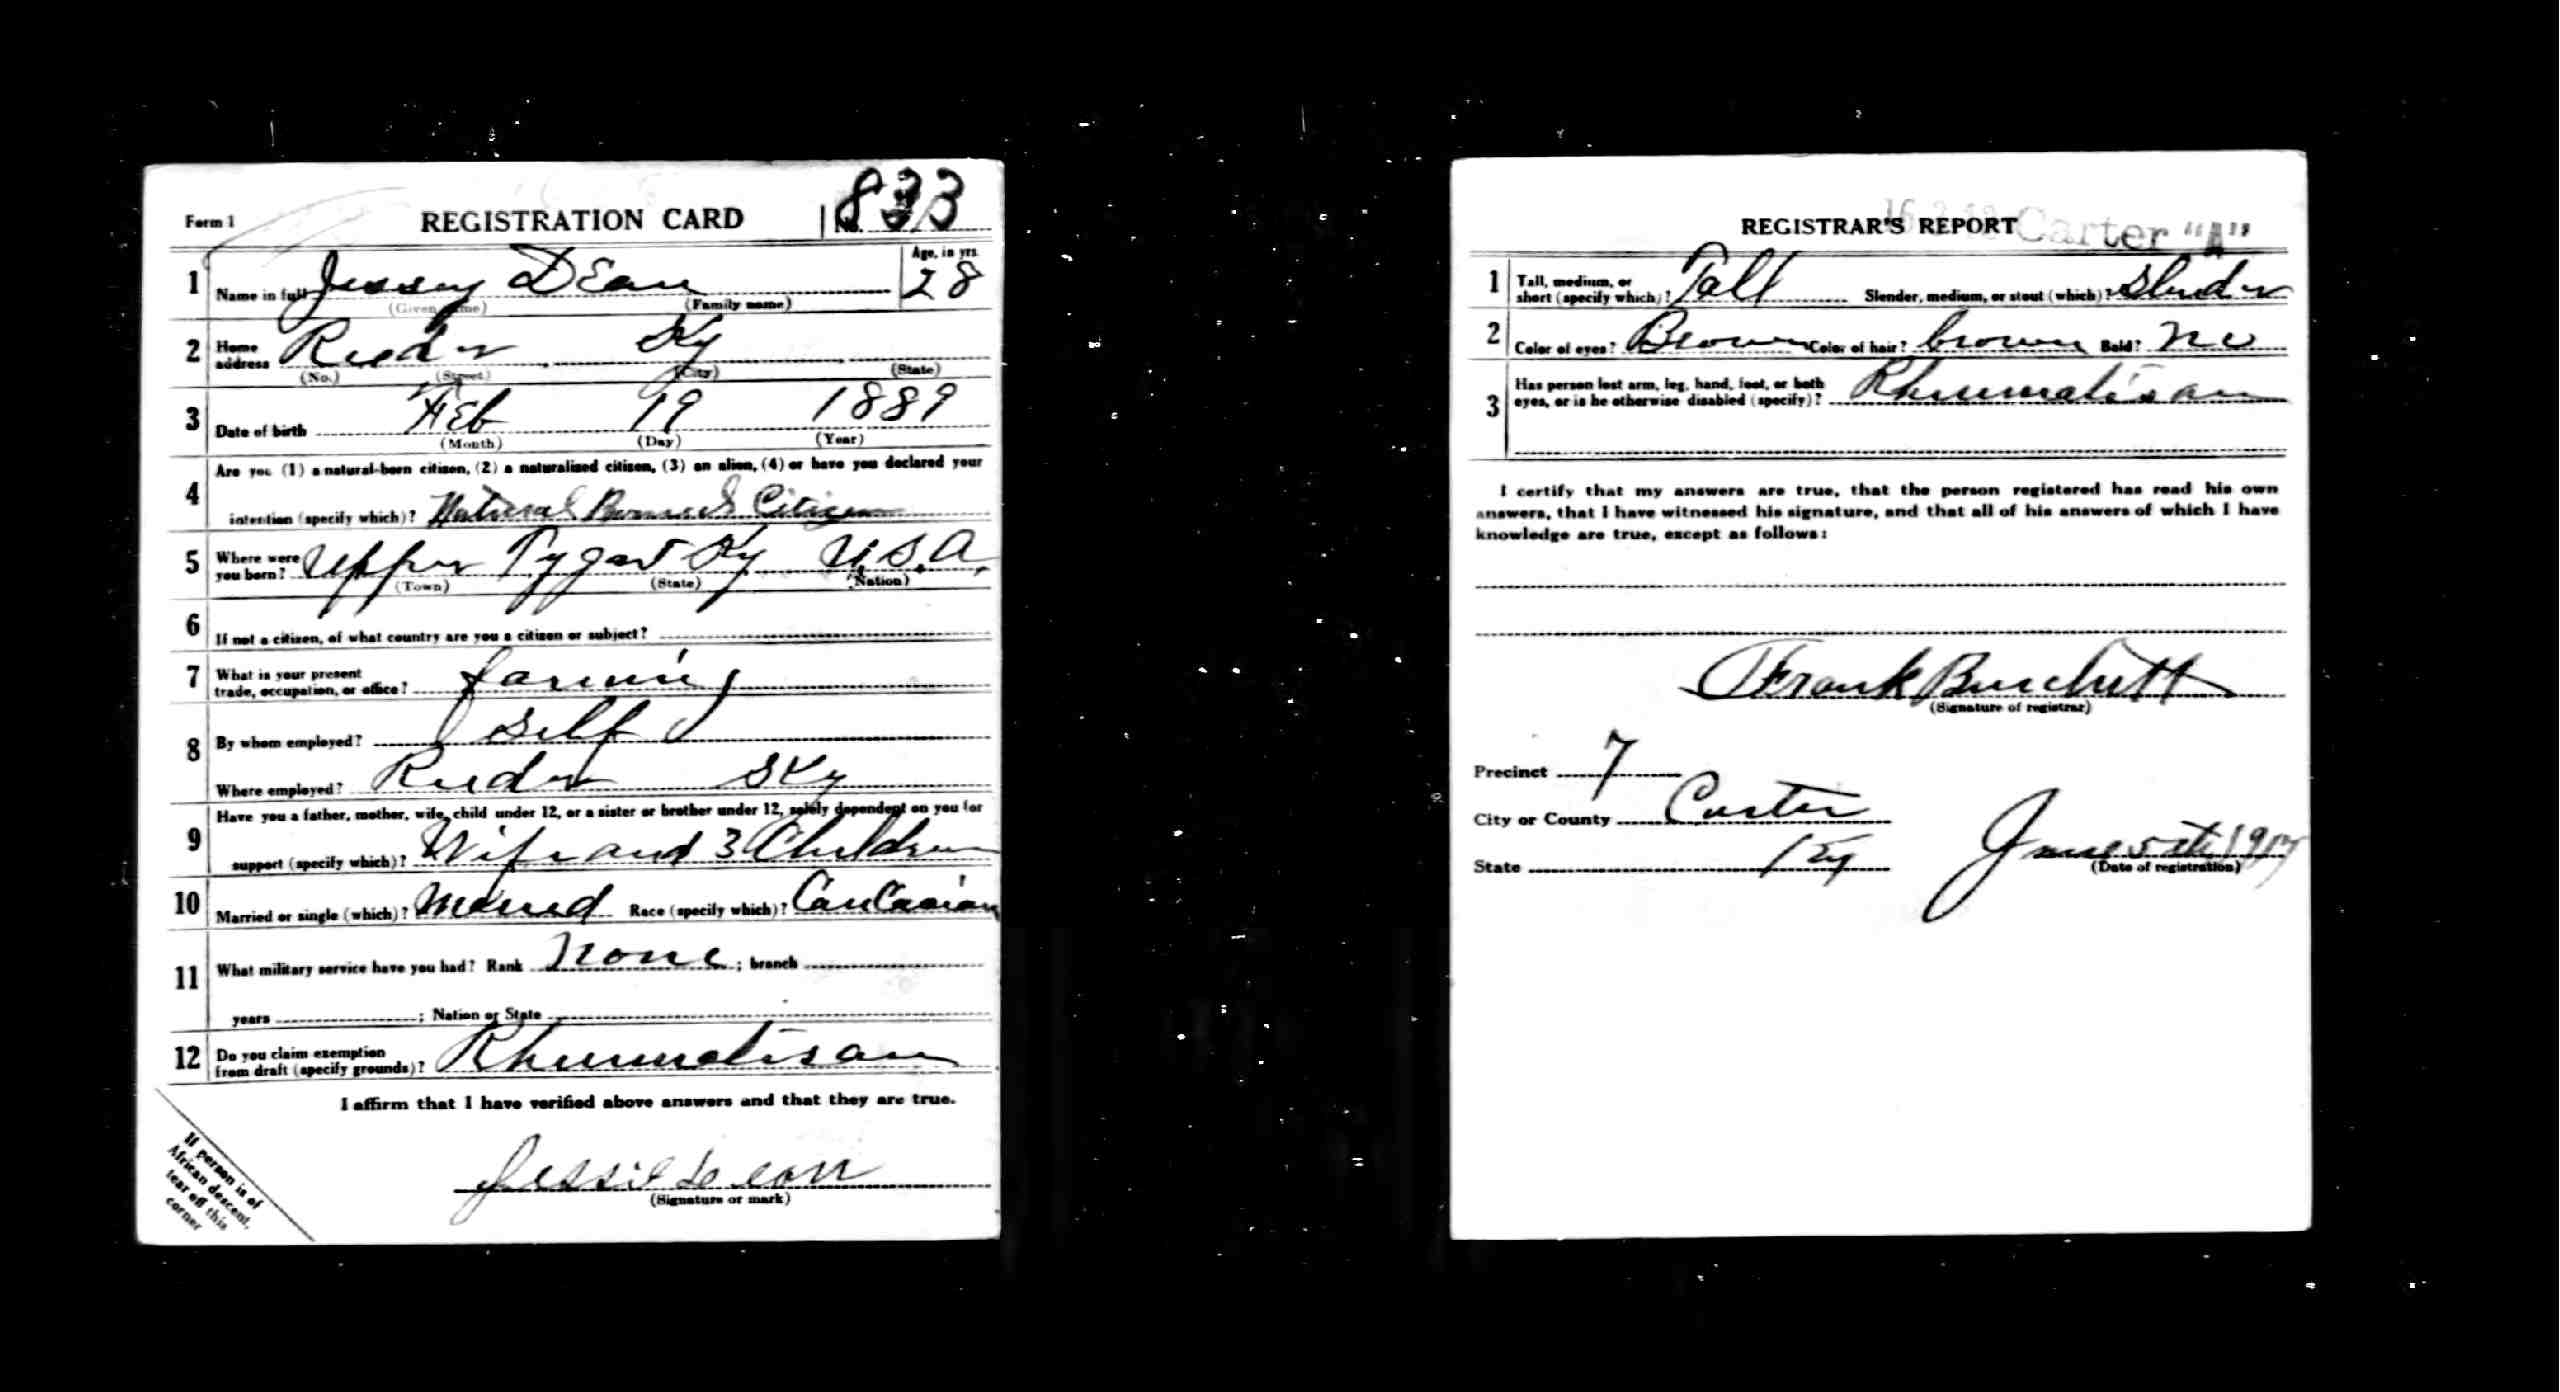 Form 1 REGISTRATION CARD No. 833
1 Name in full Jessey DEan Age, in yrs. 28
(Given name) (Family name)
2 Home address Reeder Ky
(No.) (Street) (City) (State)
3 Date of birth FEb 19 1889
(Month) (Day) (Year)
4 Are you (1) a natural-born citizen, (2) a naturalized citizen, (3) an alien, (4) or have you declared your
intention (specify which)? Natural Citizen
5 Where were you born? Upper Tygart Ky U.S.A.
(Town) (State) (Nation)
6 If not a citizen, of what country are you a citizen or subject?
7 What is your present
trade, occupation, or office? farming
8 By whom employed? Self
Where employed? Reeder Ky
9 Have you a father, mother, wife, child under 12, or a sister or brother under 12, solely dependent on you for
support (specify which)? Wife and 3 Children
10 Married or single (which)? Married Race (specify which)? Caucasian
11 What military service have you had? Rank none ; branch
years ; Nation or State
12 Do you claim exemption
from draft (specify grounds)? Rhumatisam
I affirm that I have verified above answers and that they are true.
Jessie Dean
(Signature or mark)
If person is of
African descent,
tear off this
corner
REGISTRAR'S REPORT Carter "A"
1 Tall, medium, or
short (specify which)? Tall Slender, medium, or stout (which)? Slender
2 Color of eyes? Brown Color of hair? brown Bald? no
3 Has person lost arm, leg, hand, foot, or both
eyes, or is he otherwise disabled (specify)? Rhumatisam
I certify that my answers are true, that the person registered has read his own
answers, that I have witnessed his signature, and that all of his answers of which I have
knowledge are true, except as follows:
Frank Burchett
(Signature of registrar)
Precinct 7
City or County Carter
State Ky June 5th 1917
(Date of registration)